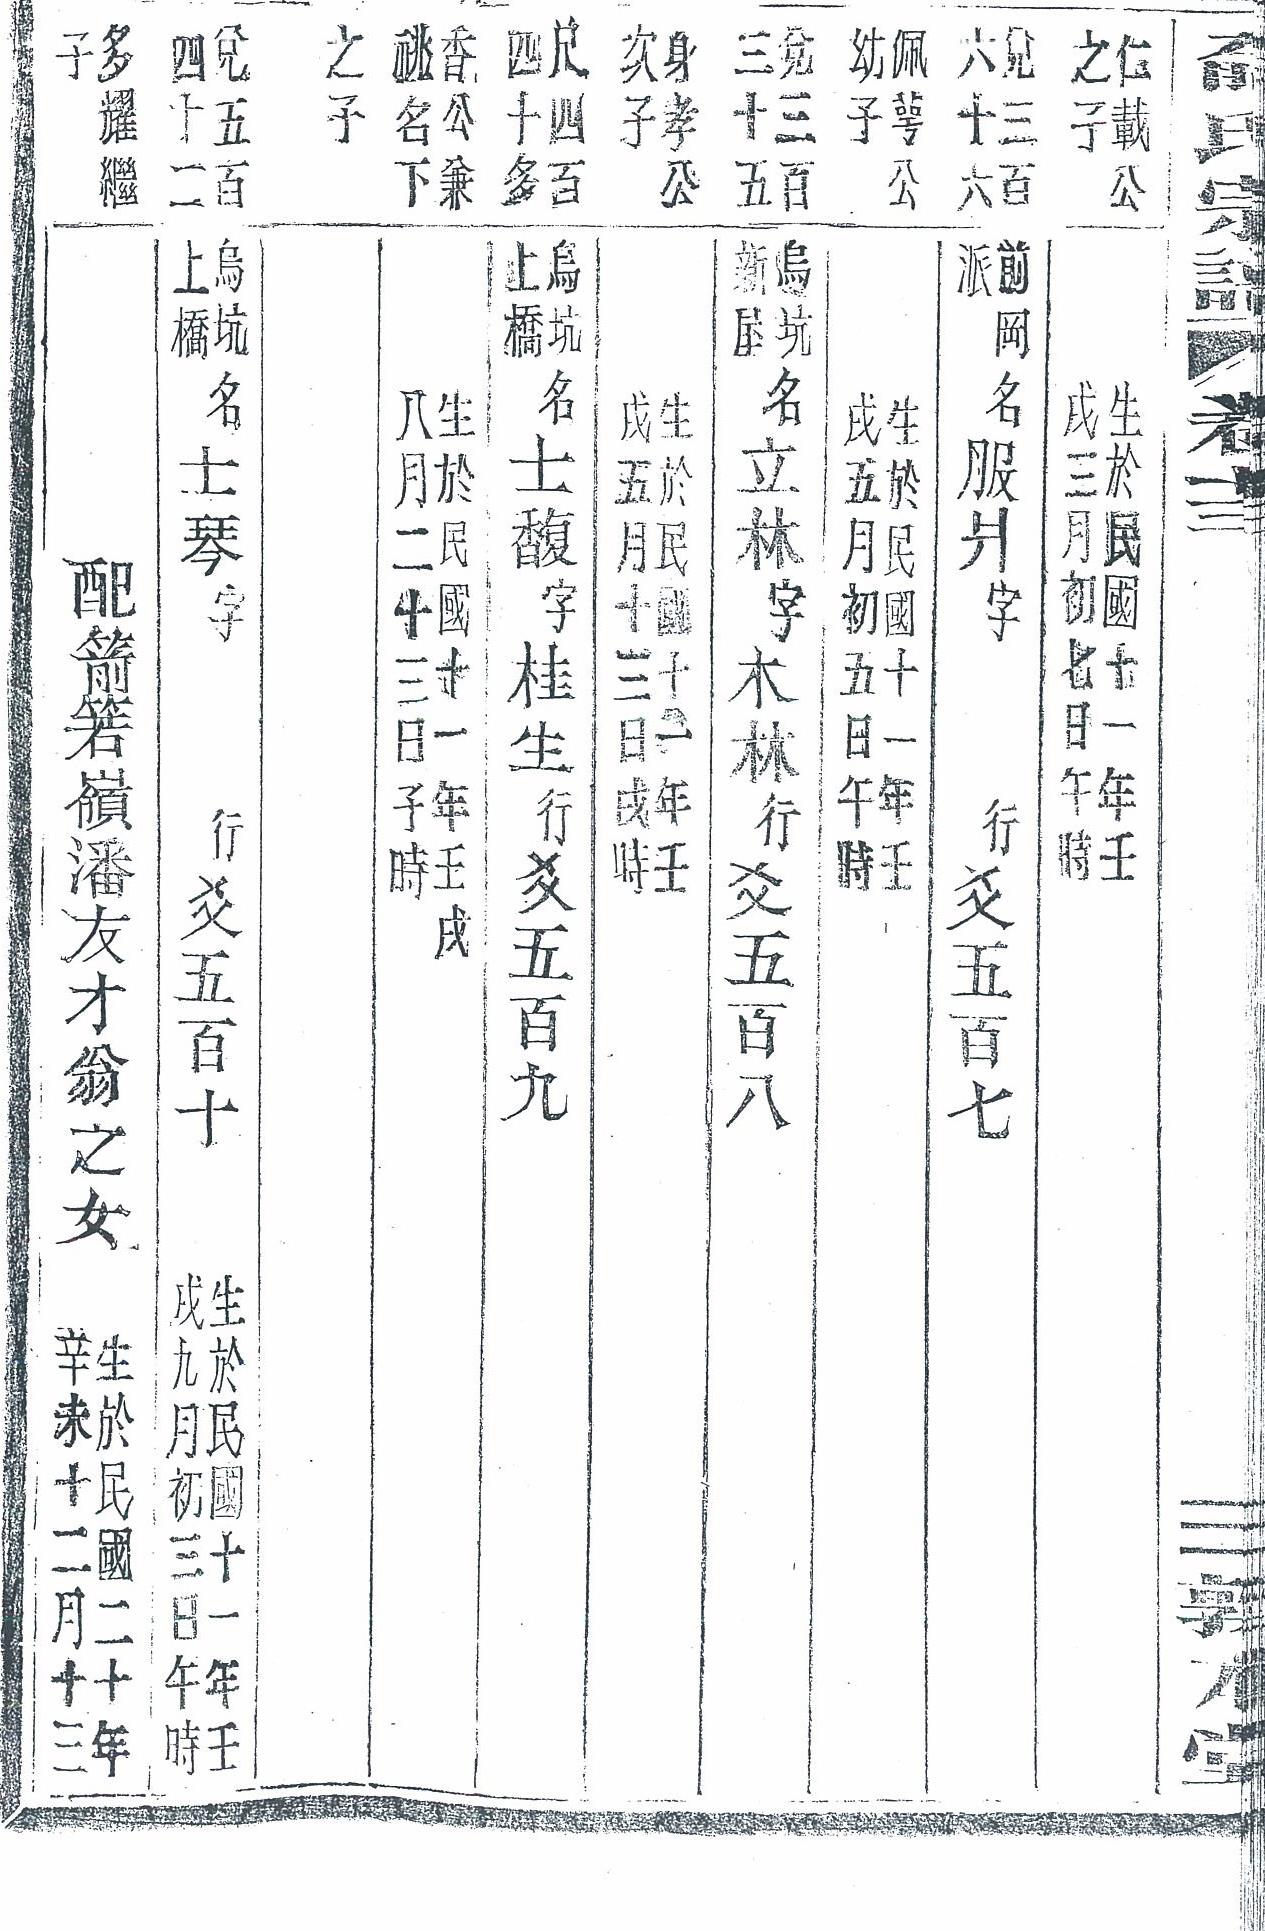 氏宗譜
卷十三
仁載公
之子
生於民國十一年壬
戌三月初七日午時
兌三百
六十六
前岡
派
名服爿字
行爻五百七
佩萼公
幼子
生於民國十一年壬
戌五月初五日午時
兌三百
三十五
烏坑
新屋
名立林字木林行爻五百八
身孝公
次子
生於民國十一年壬
戌五月十三日戌時
兌四百
四十多
烏坑
上橋
名士馥字桂生行爻五百九
香公兼
祧名下
生於民國十一年壬戌
八月二十三日子時
之子
兌五百
四十二
烏坑
上橋
名士琴字
行爻五百十
生於民國十一年壬
戌九月初三日午時
多耀繼
子
配箭箬嶺潘友才翁之女
生於民國二十年
辛未十二月十三
三
敦木堂